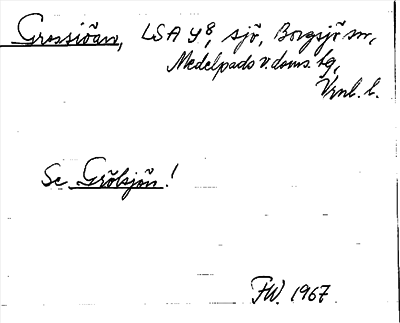 Grossiöan, LSA Y8, sjö, Borgsjö sn,
Medelpads v. doms. tg,
Vrnl. l.
Se Gröbsjön!
FW. 1967